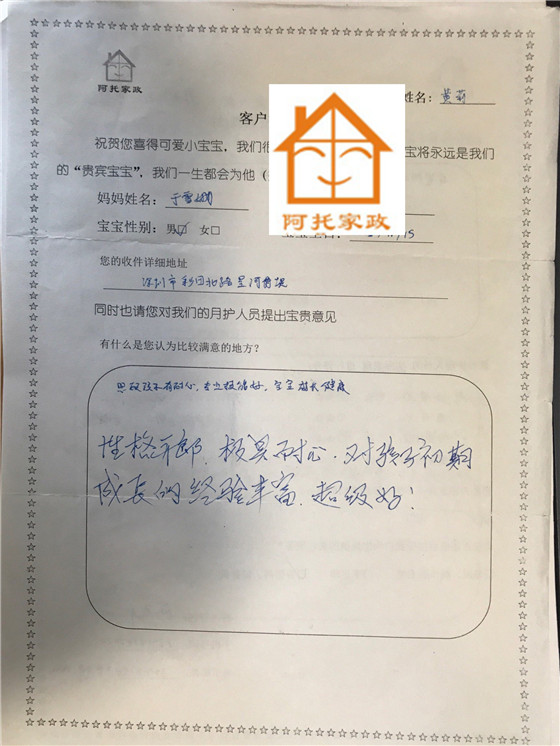 阿托家政
姓名：黄莉
客户
阿托家政
祝贺您喜得可爱小宝宝，我们很 宝将永远是我们
的“贵宾宝宝”，我们一生都会为他（
妈妈姓名：于雪
宝宝性别：男☑ 女□
您的收件详细地址
深圳市彩田北路星河
同时也请您对我们的月护人员提出宝贵意见
有什么是您认为比较满意的地方？
有耐心，专业技能好，宝宝 健康
性格开郎．极具耐心．对孩子初期
成长的经验丰富．超级好！